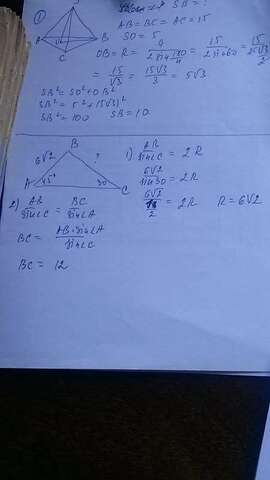 ①
S
A
B
C
SB = ?
AB = BC = AC = 15
SO = 5
OB = R = a / 2 sin 180/n = 15 / 2 sin 60 = 15 / 2√3/2
= 15/√3 = 15√3/3 = 5√3
SB² = SO² + OB²
SB² = 5² + (5√3)²
SB² = 100 SB = 10
B
6√2
?
A
45°
30°
C
1) AB/sin∠C = 2R
6√2/sin30 = 2R
6√2 / 1/2 = 2R R = 6√2
2) AB/sin∠C = BC/sin∠A
BC = AB·sin∠A / sin∠C
BC = 12